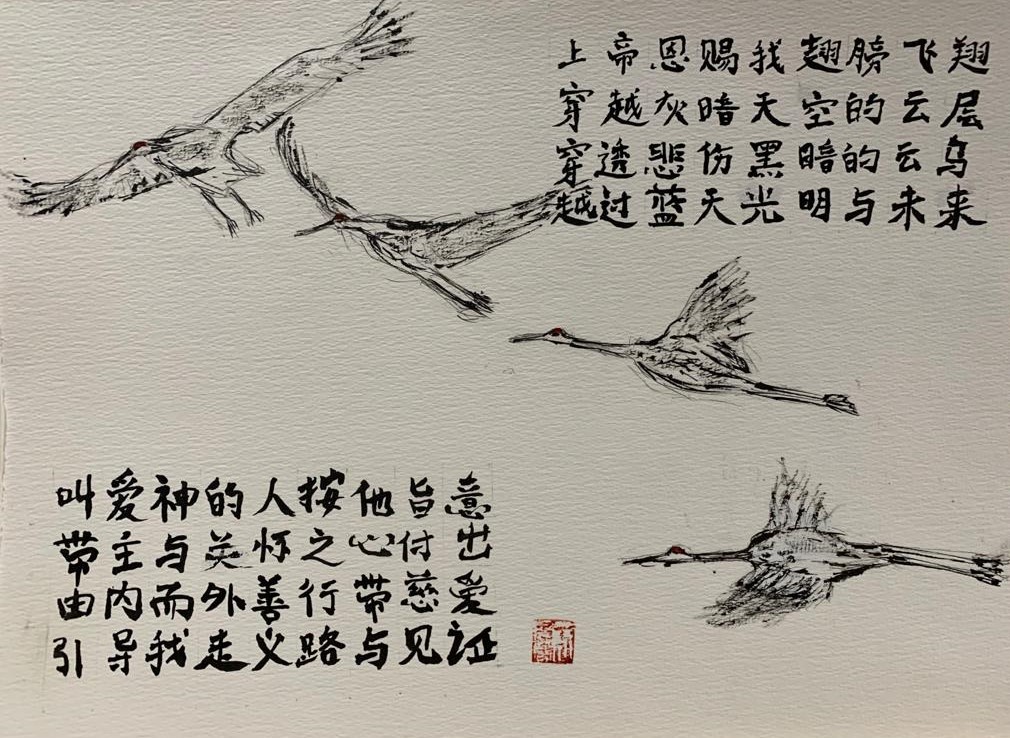 上帝恩赐我翅膀飞翔
穿越灰暗天空的云层
穿透悲伤黑暗的云乌
越过蓝天光明与未来
叫爱神的人按他旨意
带主与关怀之心付出
由内而外善行带慈爱
引导我走义路与见证